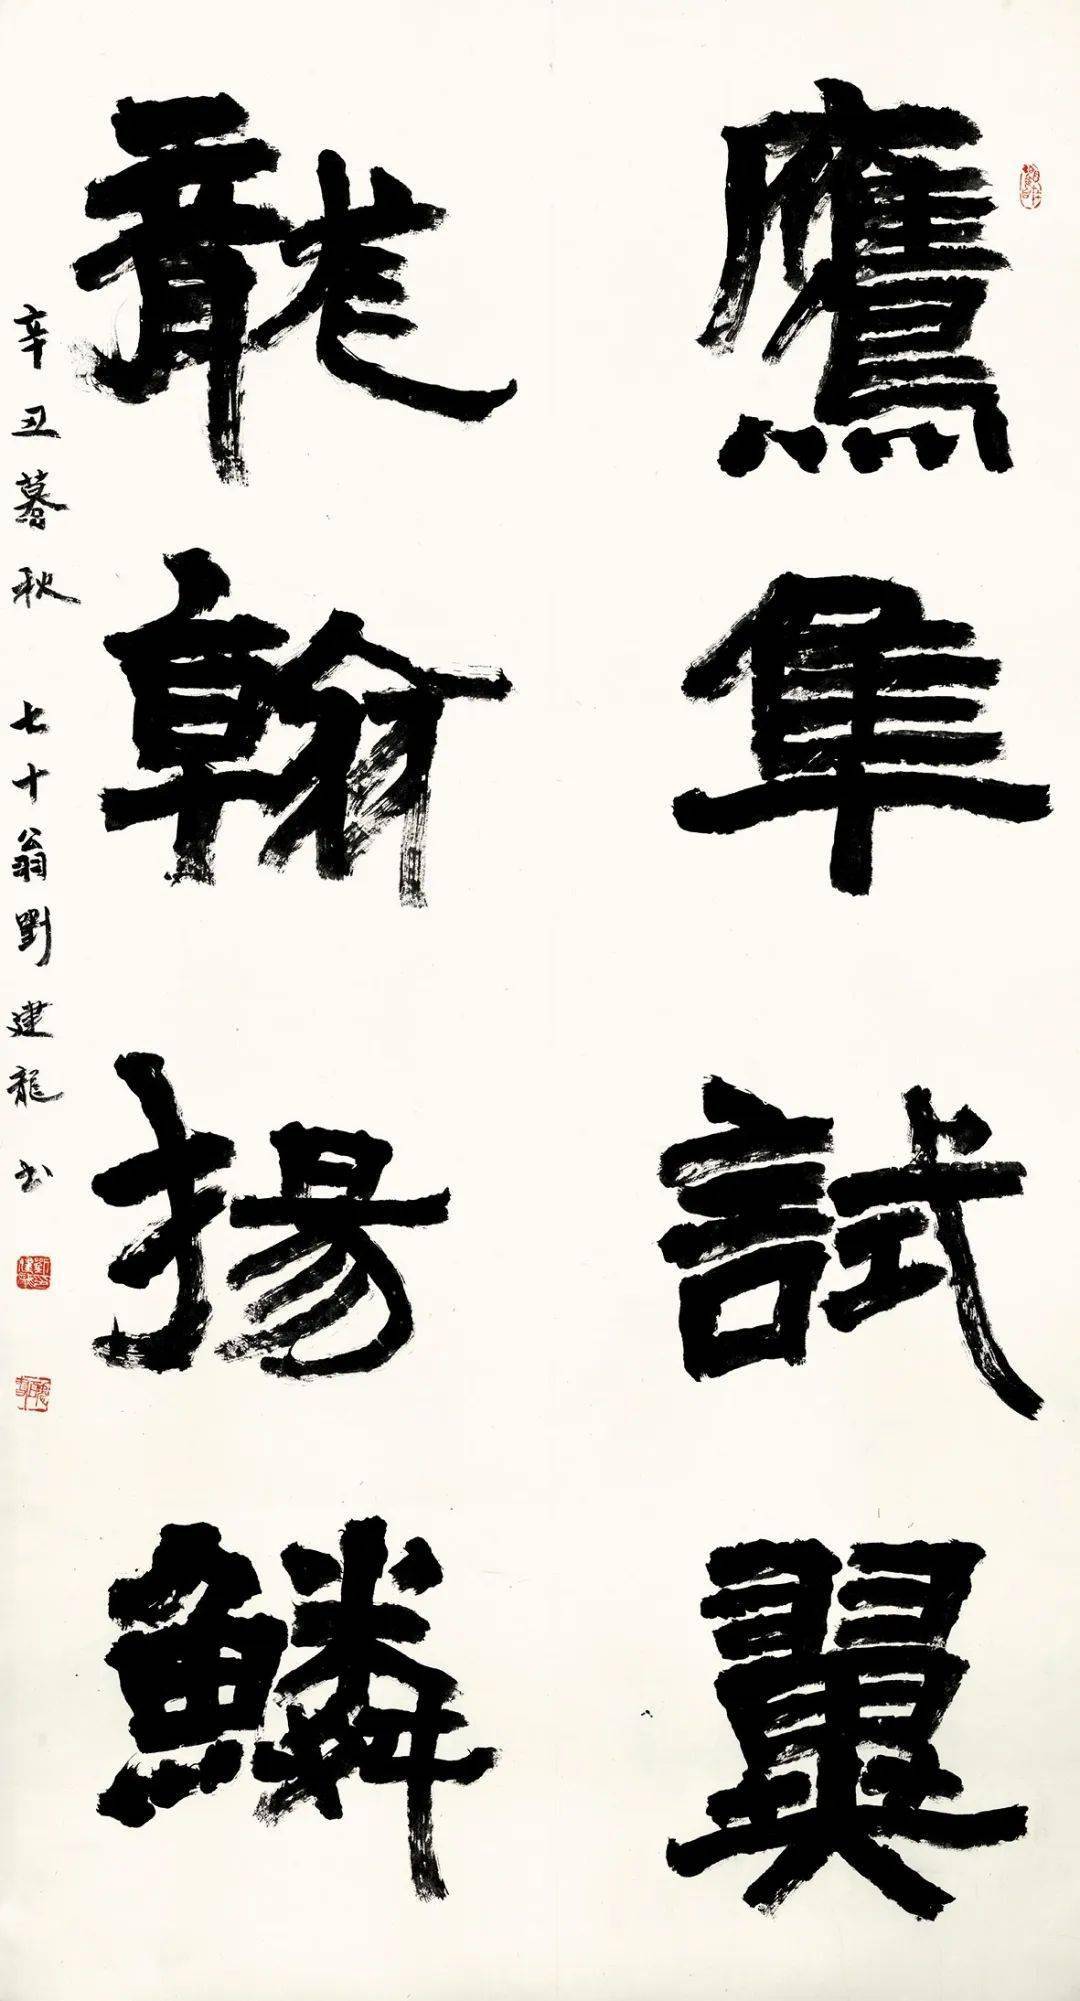 鷹隼試翼
龍翰揚鱗
辛丑暮秋 七十翁劉建龍书